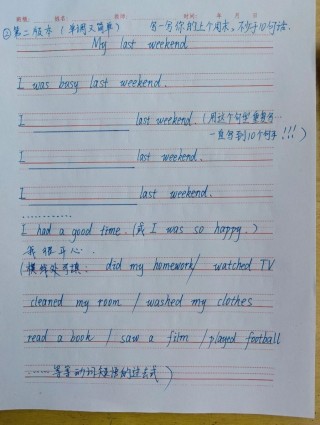 班级: 姓名: 教师: 时间: 年 月 日
② 第二版本 (单调又简单) 写一写你的上个周末,不少于10句话.
My last weekend
I was busy last weekend.
I ______ last weekend. (用这个句型重复写…
一直写到10个句子!!!)
I ______ last weekend.
I ______ last weekend.
…………
I had a good time. (或 I was so happy.)
我很开心.
(横线处可填: did my homework / watched TV
cleaned my room / washed my clothes
read a book / saw a film / played football
……等等的词短语的过去式)